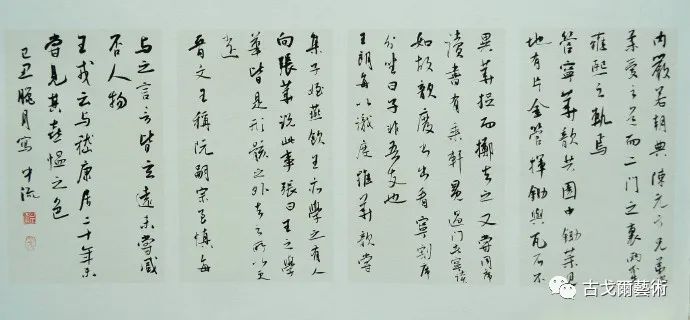 内嚴若朝典陳元方兄弟
柔愛之道而二門之裏兩不失
雍熙之軌焉
管寧華歆共園中鋤菜見
地有片金管揮鋤與瓦石不
異華捉而擲去之又嘗同席
讀書有乘軒冕過門者寧讀
如故歆廢書出看寧割席
分坐曰子非吾友也
王朗每以識度推華歆嘗
集子姪燕飲王亦學之有人
向張華説此事張曰王之學
華皆是形骸之外去之所以更
遠
晉文王稱阮嗣宗至慎每
與之言言皆玄遠未嘗臧
否人物
王戎云與嵇康居二十年未
嘗見其喜慍之色
己丑臘月寫 中流
古戈爾藝術